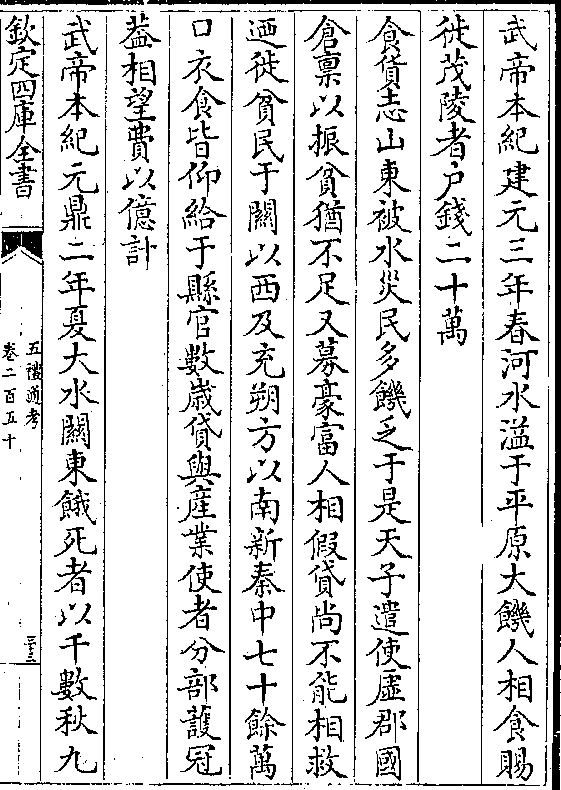 武帝本紀建元三年春河水溢于平原大饑人相食賜
徙茂陵者户錢二十萬
食貨志山東被水災民多饑乏于是天子遣使虛郡國
倉稟以振貧猶不足又募豪富人相假貸尚不能相救
迺徙貧民于關以西及充朔方以南新秦中七十餘萬
口衣食皆仰給于縣官數歲貸與産業使者分部護冠
葢相望費以億計
武帝本紀元鼎二年夏大水關東餓死者以千數秋九
欽定四庫全書
五禮通考
卷二百五十
三十三